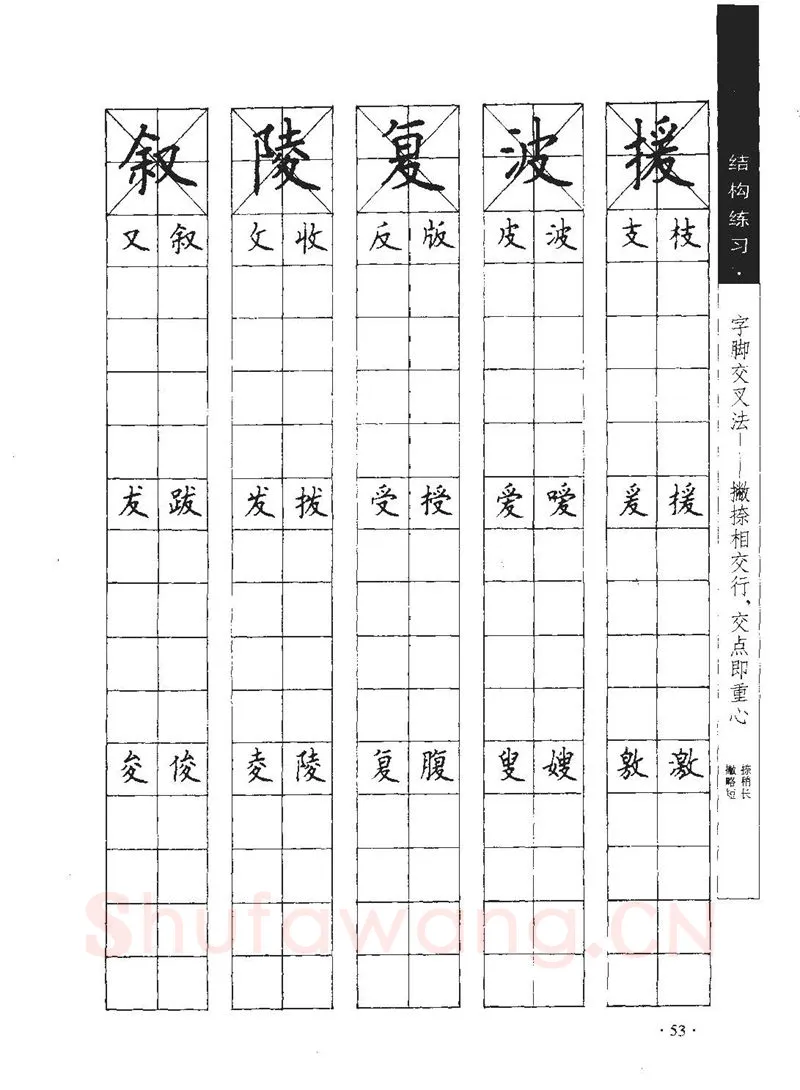 结构练习·
字脚交叉法——撇捺相交行，交点即重心
捺稍长
撇略短
援
支 枝
爰 援
敫 激
波
皮 波
爱 嗳
叟 嫂
复
反 版
受 授
复 腹
陵
攵 收
发 拨
夌 陵
叙
又 叙
犮 跋
夋 俊
Shufawang.CN
·53·